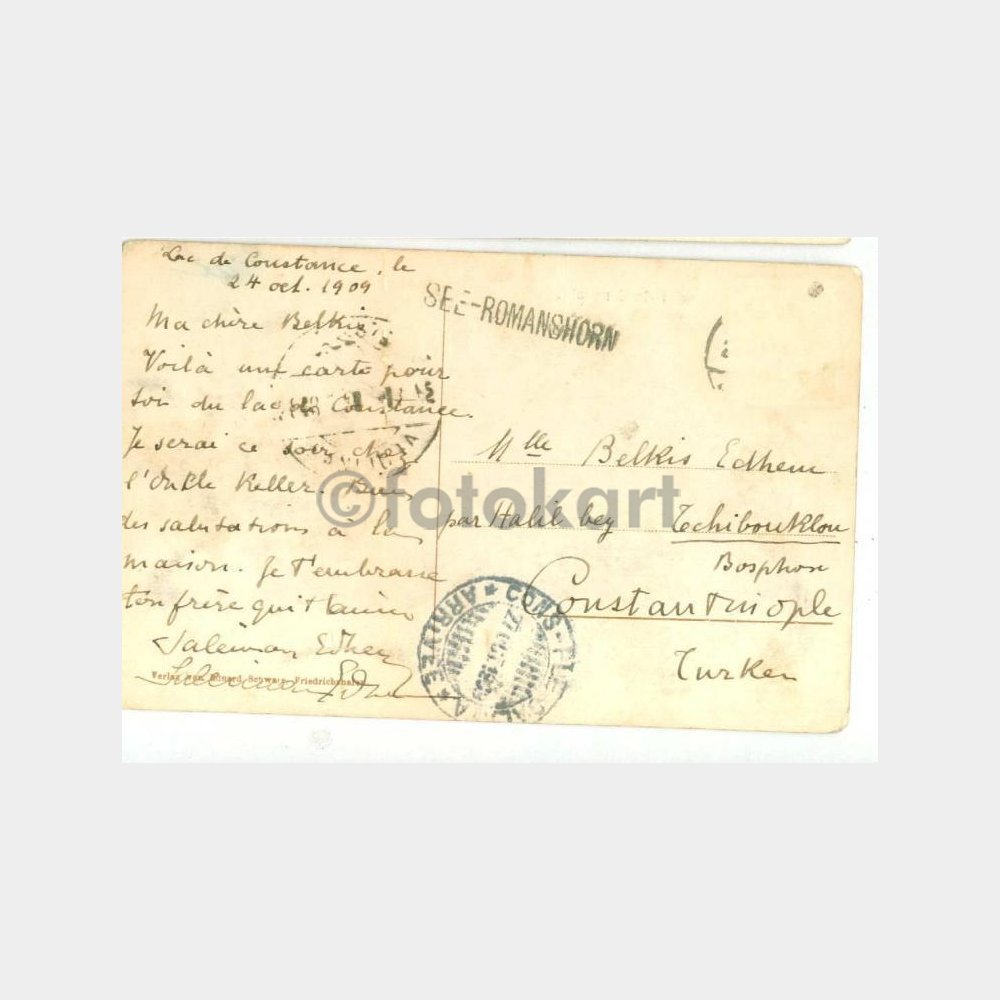 Lac de Constance, le
24 oct. 1909
Ma chère Belkis,
Voilà une carte pour
toi du lac de Constance.
Je serai ce soir chez
l'Onkle Keller. Bien
des salutations à la
maison. Je t'embrasse
ton frère qui t'aime
Suleiman Edhem
Suleiman Edhem
Verlag von Eduard Schwarz, Friedrichshafen
SEE-ROMANSHORN
Mlle Belkis Edhem
par Halil bey Tchibouklou
Bosphore
Constantinople
Turkei
ARRIVEE
©fotokart